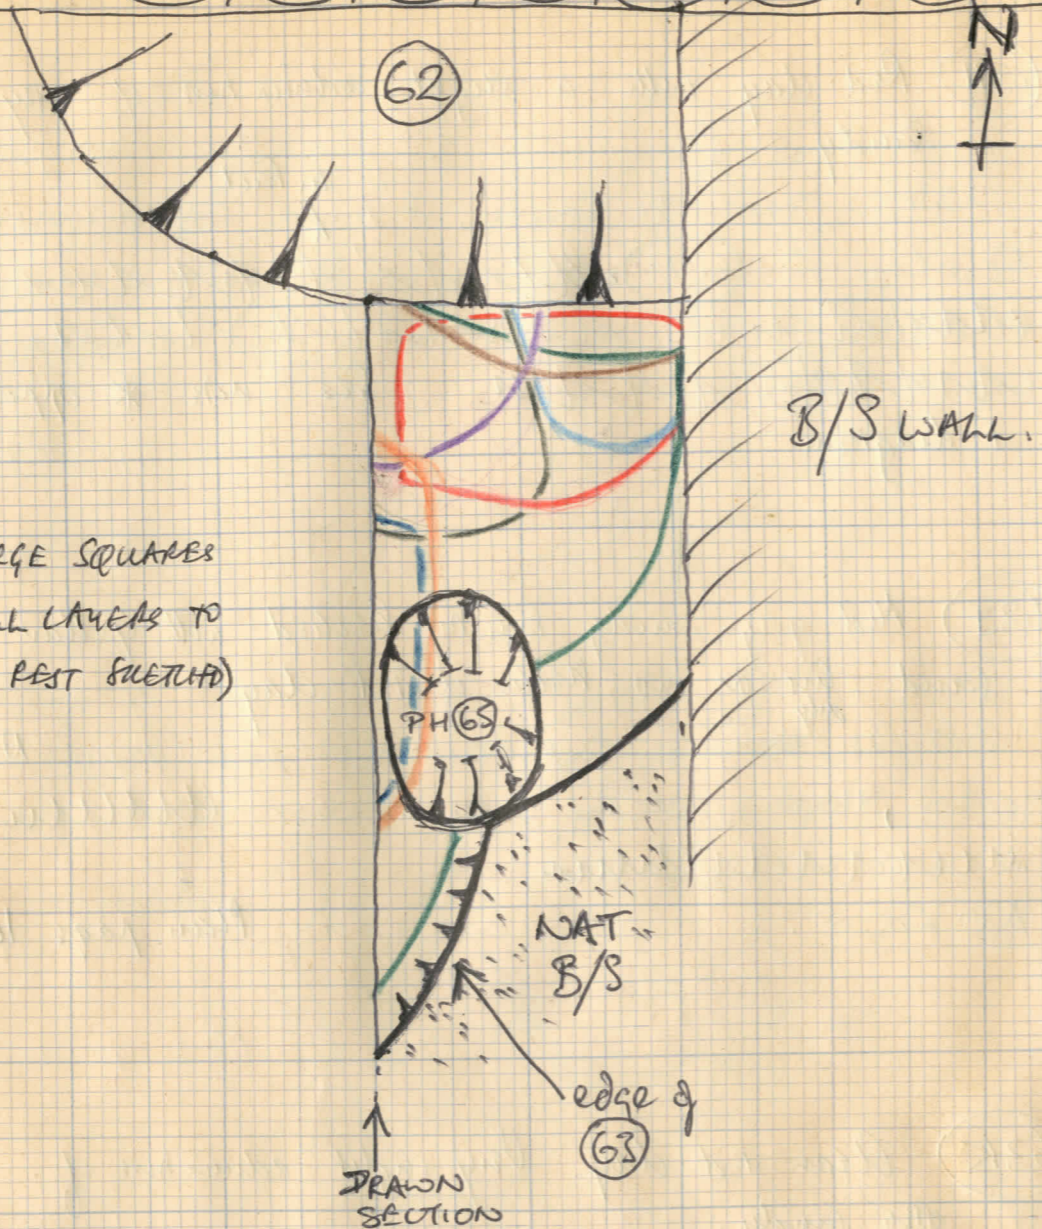 N
62
B/S WALL.
RGE SQUARES
LL LAYERS TO
REST SKETCHED)
PH 65
NAT
B/S
edge of
63
DRAWN
SECTION